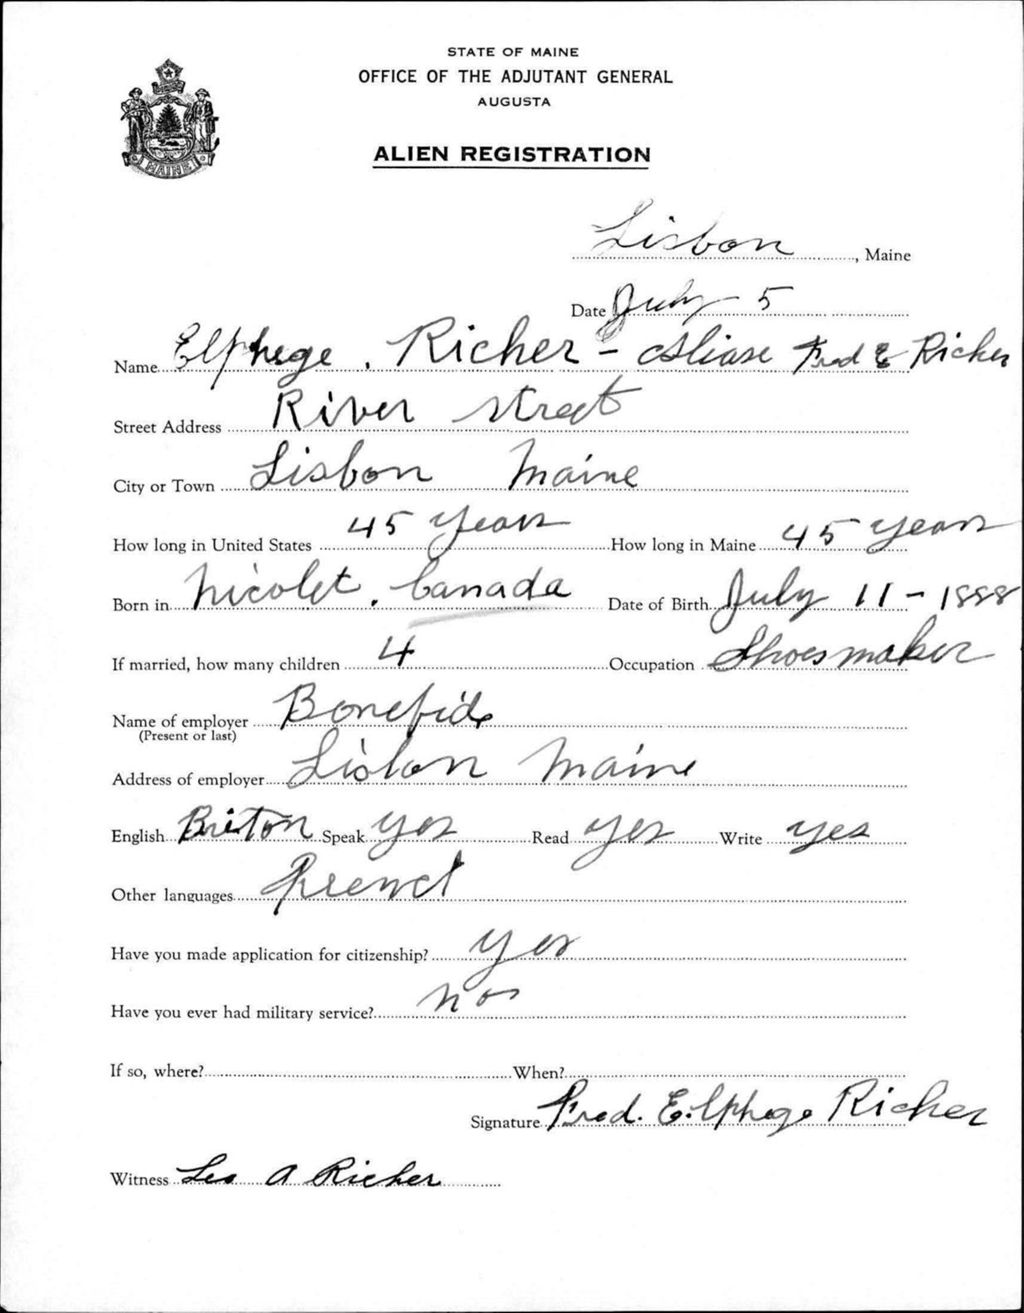 STATE OF MAINE
OFFICE OF THE ADJUTANT GENERAL
AUGUSTA
MAINE
ALIEN REGISTRATION
Lisbon, Maine
Date July 5
Name Elphege. Richer - Aliase Fred E Richer
Street Address River Street
City or Town Lisbon Maine
How long in United States 45 years How long in Maine 45 years
Born in Nicolet. Canada Date of Birth July 11 - 1888
If married, how many children 4 Occupation Shoesmaker
Name of employer Bonefide
(Present or last)
Address of employer Lisbon Maine
English Briton Speak yes Read yes Write yes
Other languages French
Have you made application for citizenship? yes
Have you ever had military service? no
If so, where? When?
Signature Fred. Elphege Richer
Witness Leo A Richer